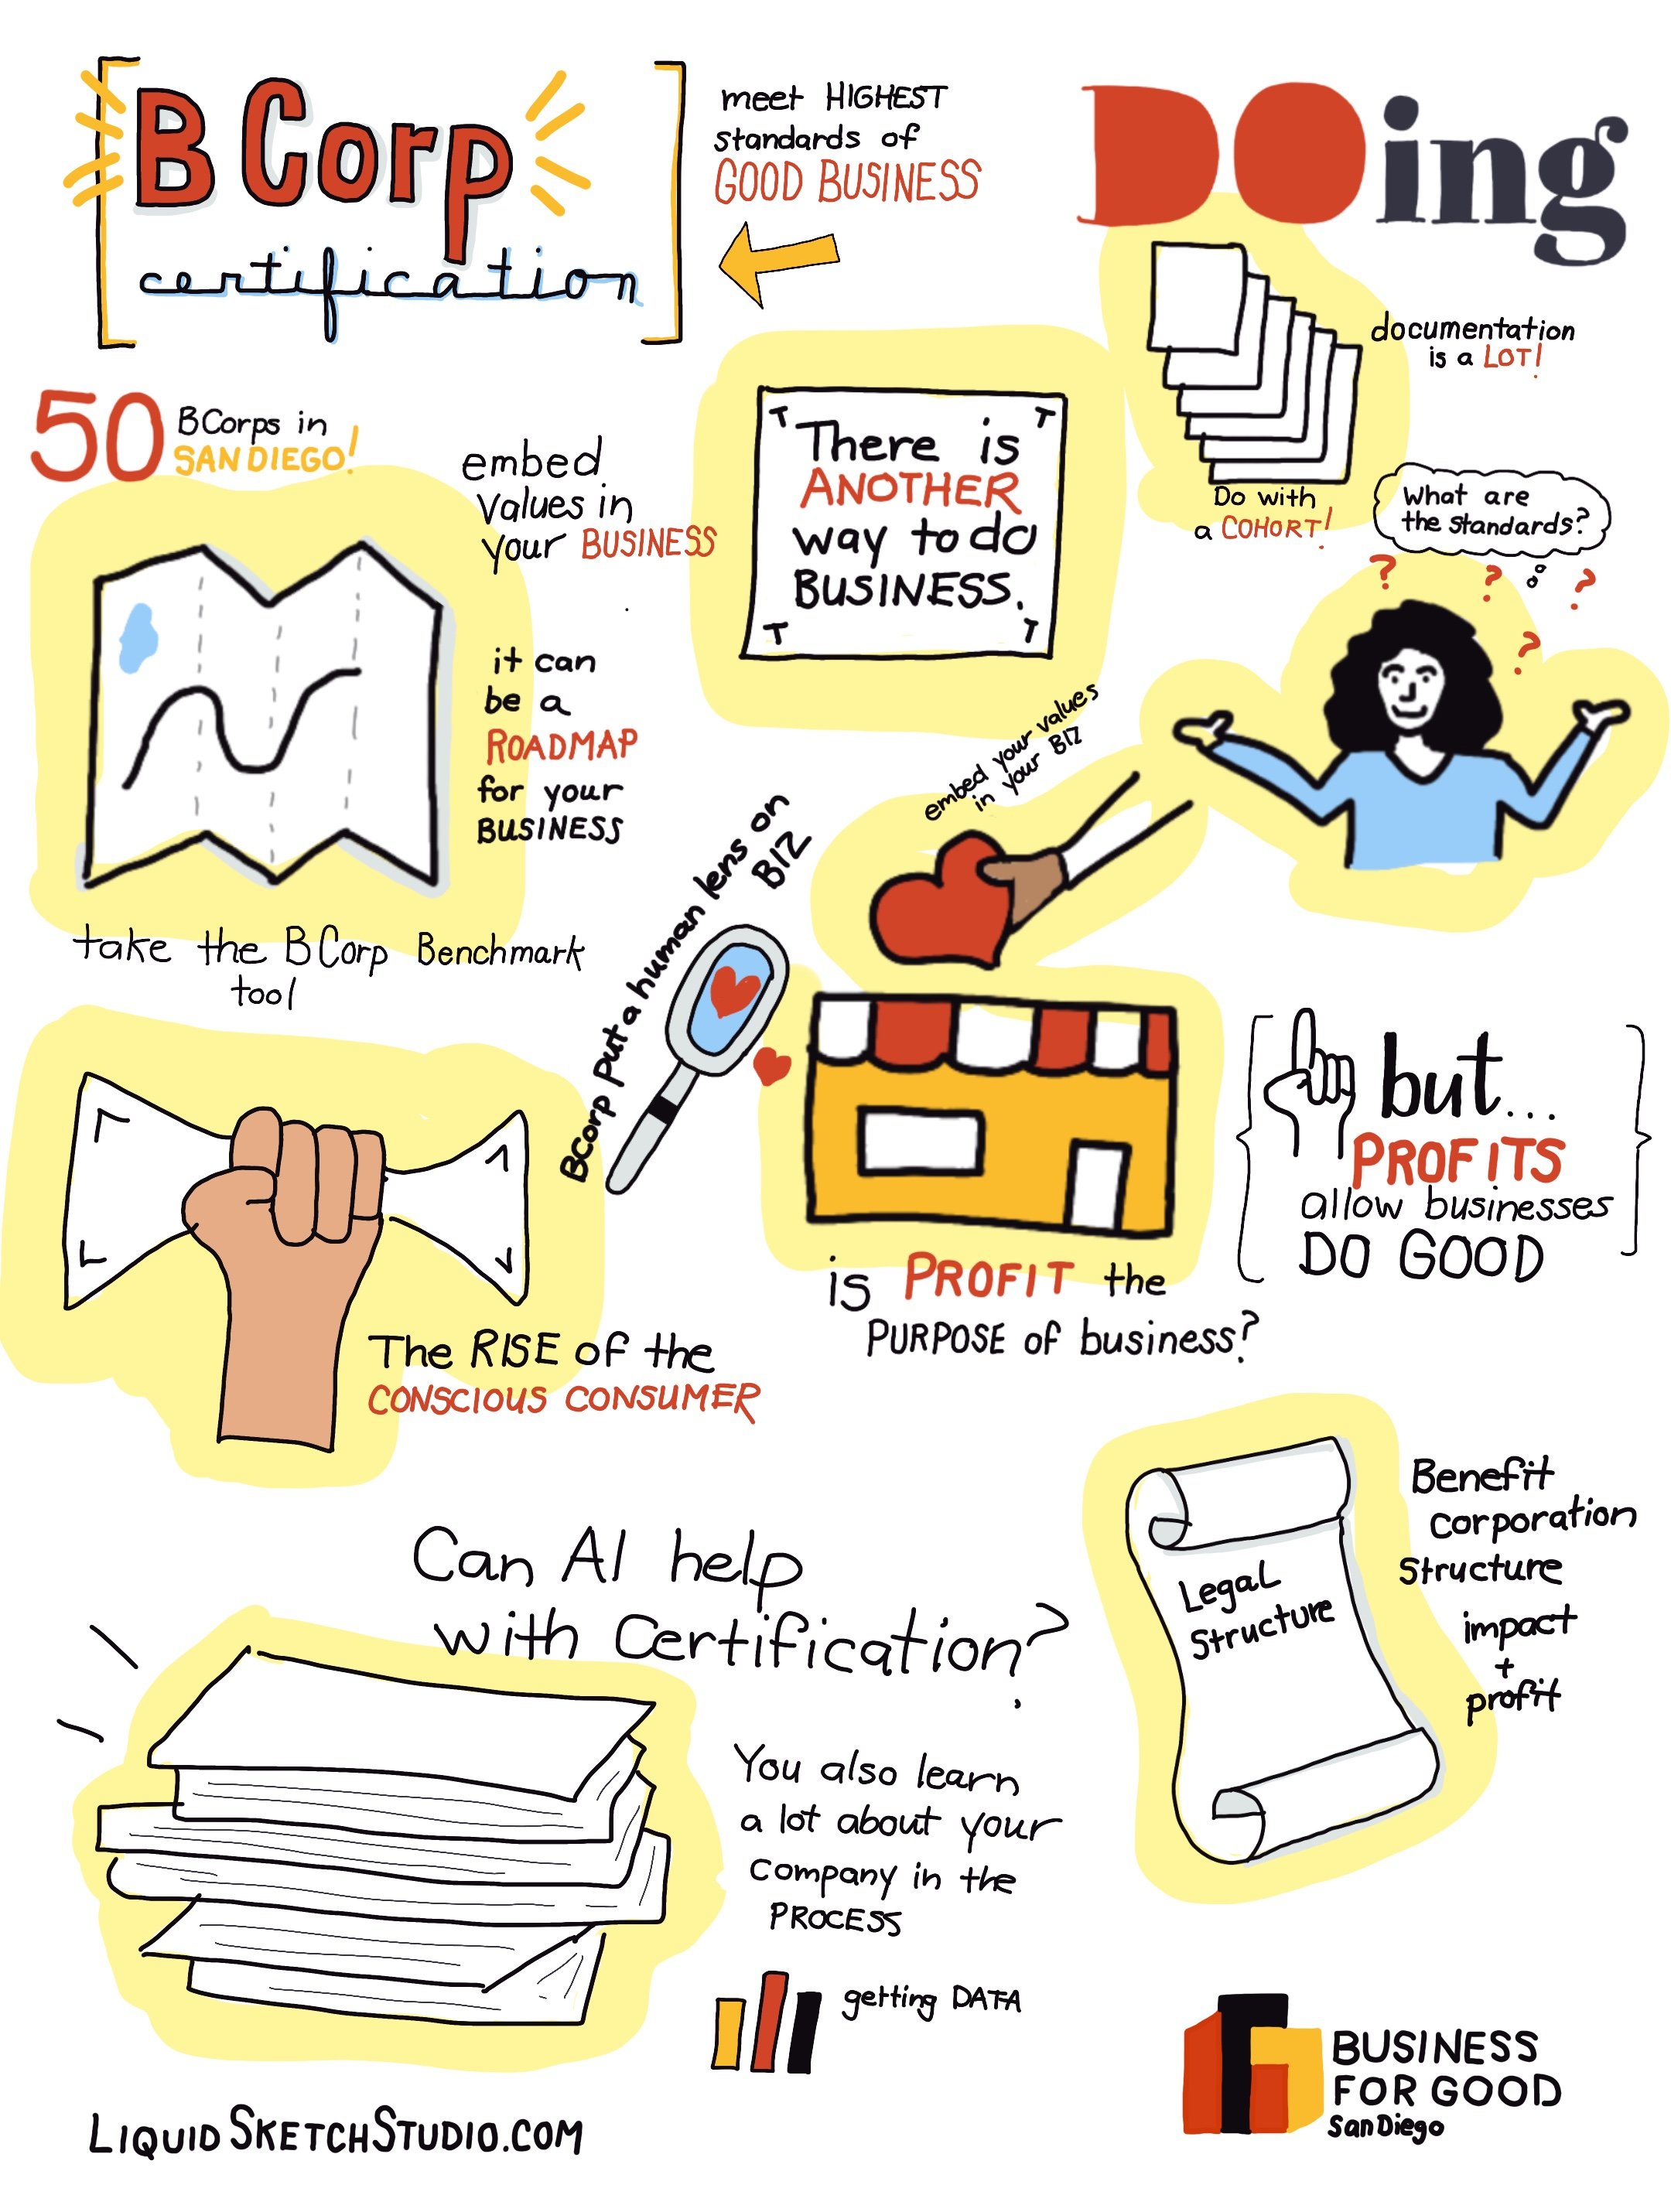 B Corp
certification
meet HIGHEST
standards of
GOOD BUSINESS
DOing
documentation
is a LOT!
Do with
a COHORT!
What are
the standards?
? ? ?
?
50
BCorps in
SAN DIEGO!
embed
values in
your BUSINESS
it can
be a
ROADMAP
for your
BUSINESS
take the BCorp Benchmark
tool
There is
ANOTHER
way to do
BUSINESS.
embed your values
in your BIZ
BCorp put a human lens on
BIZ
is PROFIT the
PURPOSE of business?
but...
PROFITS
allow businesses
DO GOOD
The RISE of the
CONSCIOUS CONSUMER
Can AI help
with Certification?
You also learn
a lot about your
company in the
PROCESS
getting DATA
Legal
Structure
Benefit
corporation
Structure
impact
+
profit
LIQUIDSKETCHSTUDIO.COM
BUSINESS
FOR GOOD
San Diego